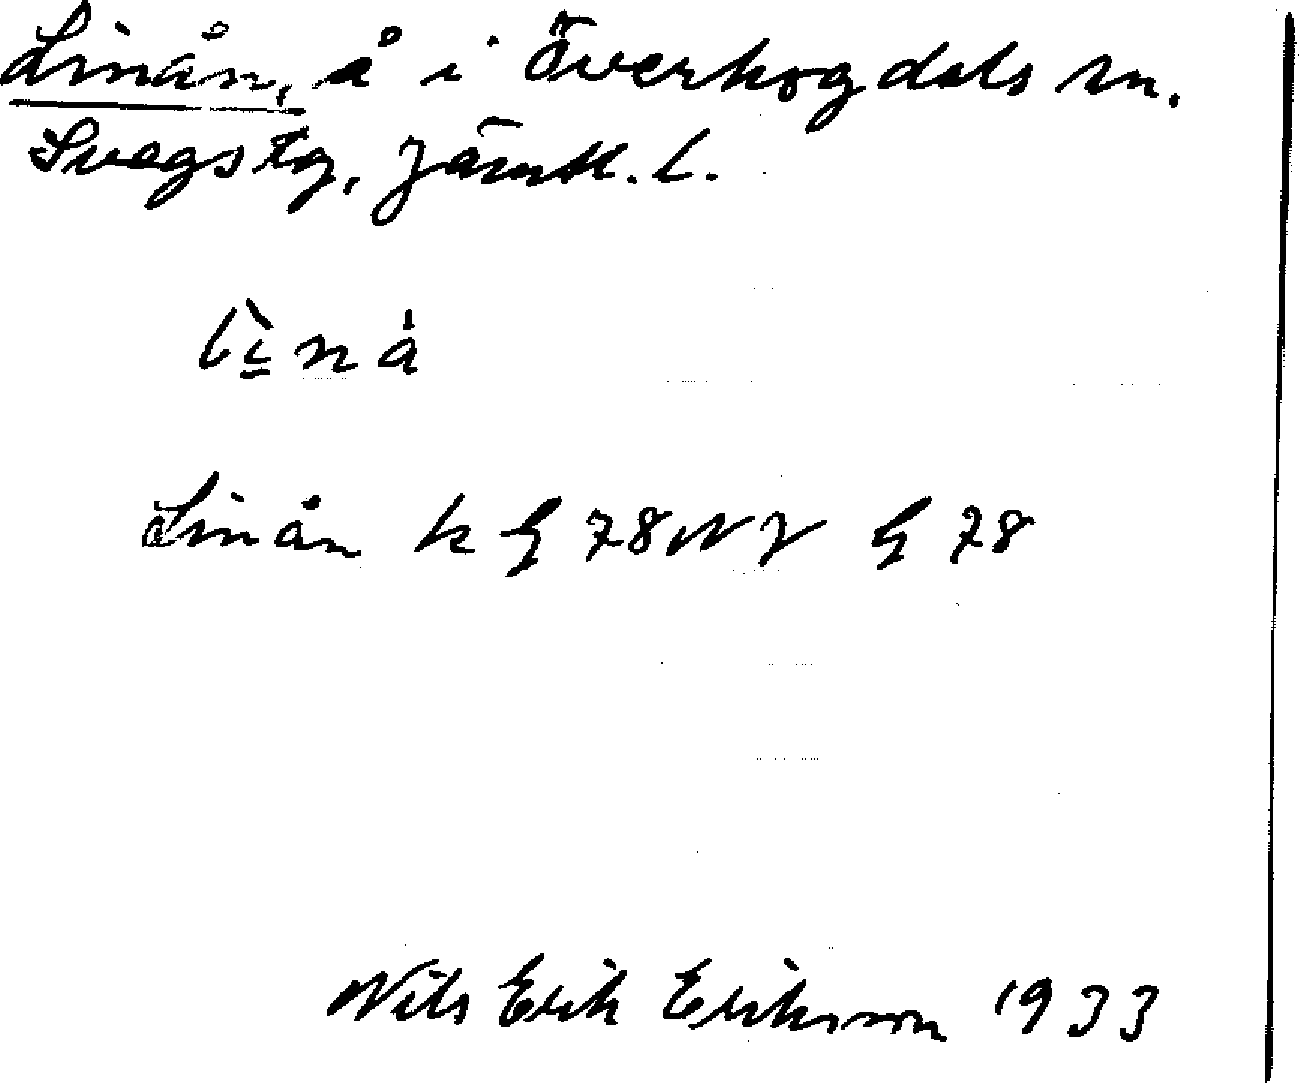 Linån, å i Överhogdals sn.
Svegs tg, Jämtl. l.
lìnå
Linån k G 78 NV G 78
Nils Erik Eriksson 1933